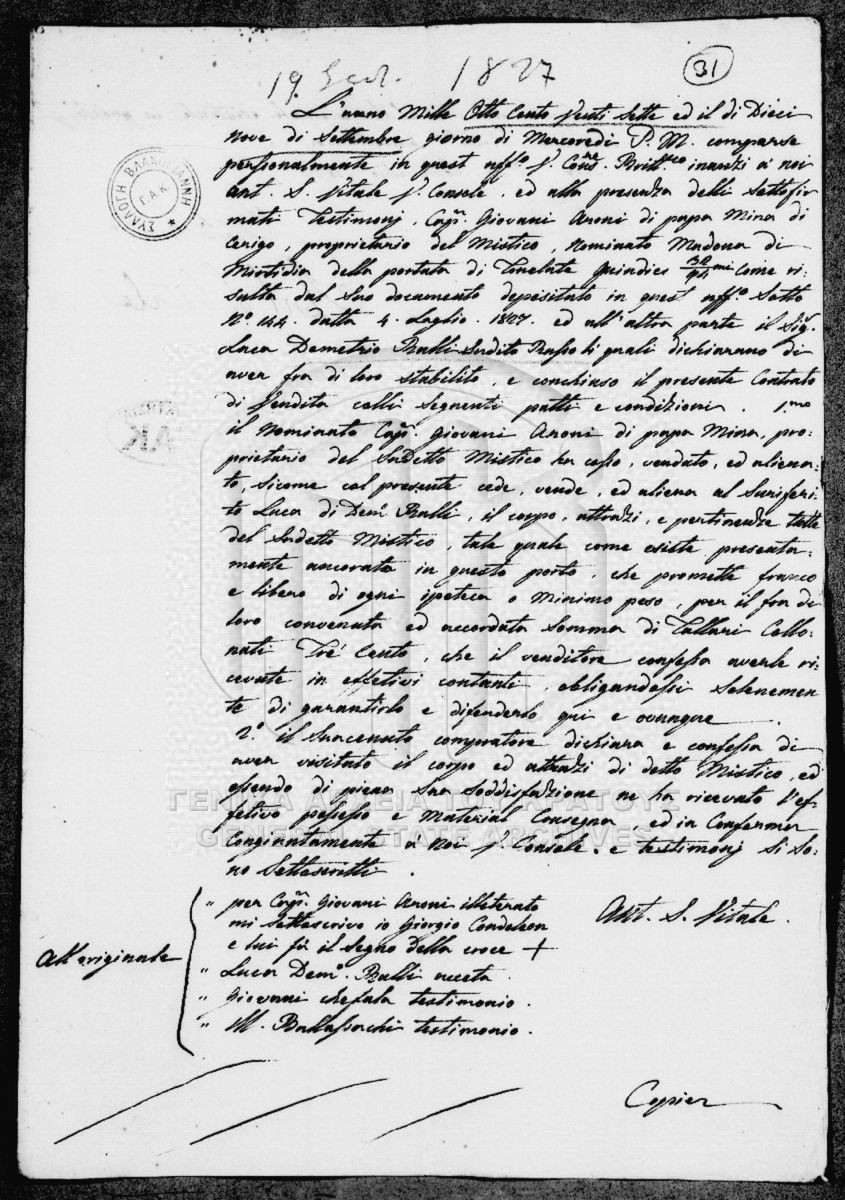 19 1827
31
L'anno Mille Otto Cento Venti Sette ed il di Dieci
nove di Settembre giorno di Mercoredi P. M. comparse
personalmente in quest uff.º V. Cons.re Britt.co inanzi a noi
Ant. S. Vitale V. Console, ed alla presenza delli Sottofir
mati Testimonj, Cap.n Giovani Aroni di papa Mina di
Cerigo, proprietario del Mistico, Nominato Madona di
Mirtidia della portata di Tonelate quindici come ri-
sulta dal suo documento depositato in quest uff.º Sotto
Nº 144. datta 4. Luglio 1827. ed all'altra parte il Sig.r
Luca Demetrio Ralli Sudito Russo li quali dichiarano di
aver fra di loro stabilito, e conchiuso il presente Contrato
di Vendita colli seguenti patti e condizioni. 1.mo
il Nominato Cap.n Giovani Aroni di papa Mina, pro-
prietario del Sudetto Mistico ha cesso, vendato, ed aliena-
to, sicome col presente cede, vende, ed aliena al Suriferi
to Luca di Dem.º Ralli, il corpo, attrazi, e pertinenze tutte
del Sudetto Mistico, tale quale come esiste presenta-
mente ancorato in questo porto, che promette franco
e libero di ogni ipoteca o Minimo peso, per il fra di
loro convenuta ed accordata Somma di Tallari Collo-
nati Tré Cento, che il venditore confessa averle ri
cevute in effetivi contanti, obligandossi Solenemen
te di garantirlo e difenderlo qui e ovunque
2º il Suacenato compratore dichiara e confessa di
aver visitato il corpo ed attrazi di detto Mistico, ed
essendo di piena sua soddisfazione ne ha ricevuto l'ef-
fetivo possesso e Material Consegna ed in Conferma
Congiuntamente a Noi V. Console, e testimonj Si So-
no Sottoscritti.
" per Cap.n Giovani Aroni illeterato
mi sottoscrivo io Giorgio Condoleon
e lui fà il Segno della croce +
" Luca Dem.º Ralli acceta
" Giovani chefala testimonio.
" M. testimonio.
All'originale
Ant. S. Vitale.
Copier
ΣΥΛΛΟΓΗ ΒΛΑΧΟΓΙΑΝΝΗ
Γ.Α.Κ.
ΓΕΝΙΚΑ ΑΡΧΕΙΑ ΤΟΥ ΚΡΑΤΟΥΣ
GENERAL STATE ARCHIVES